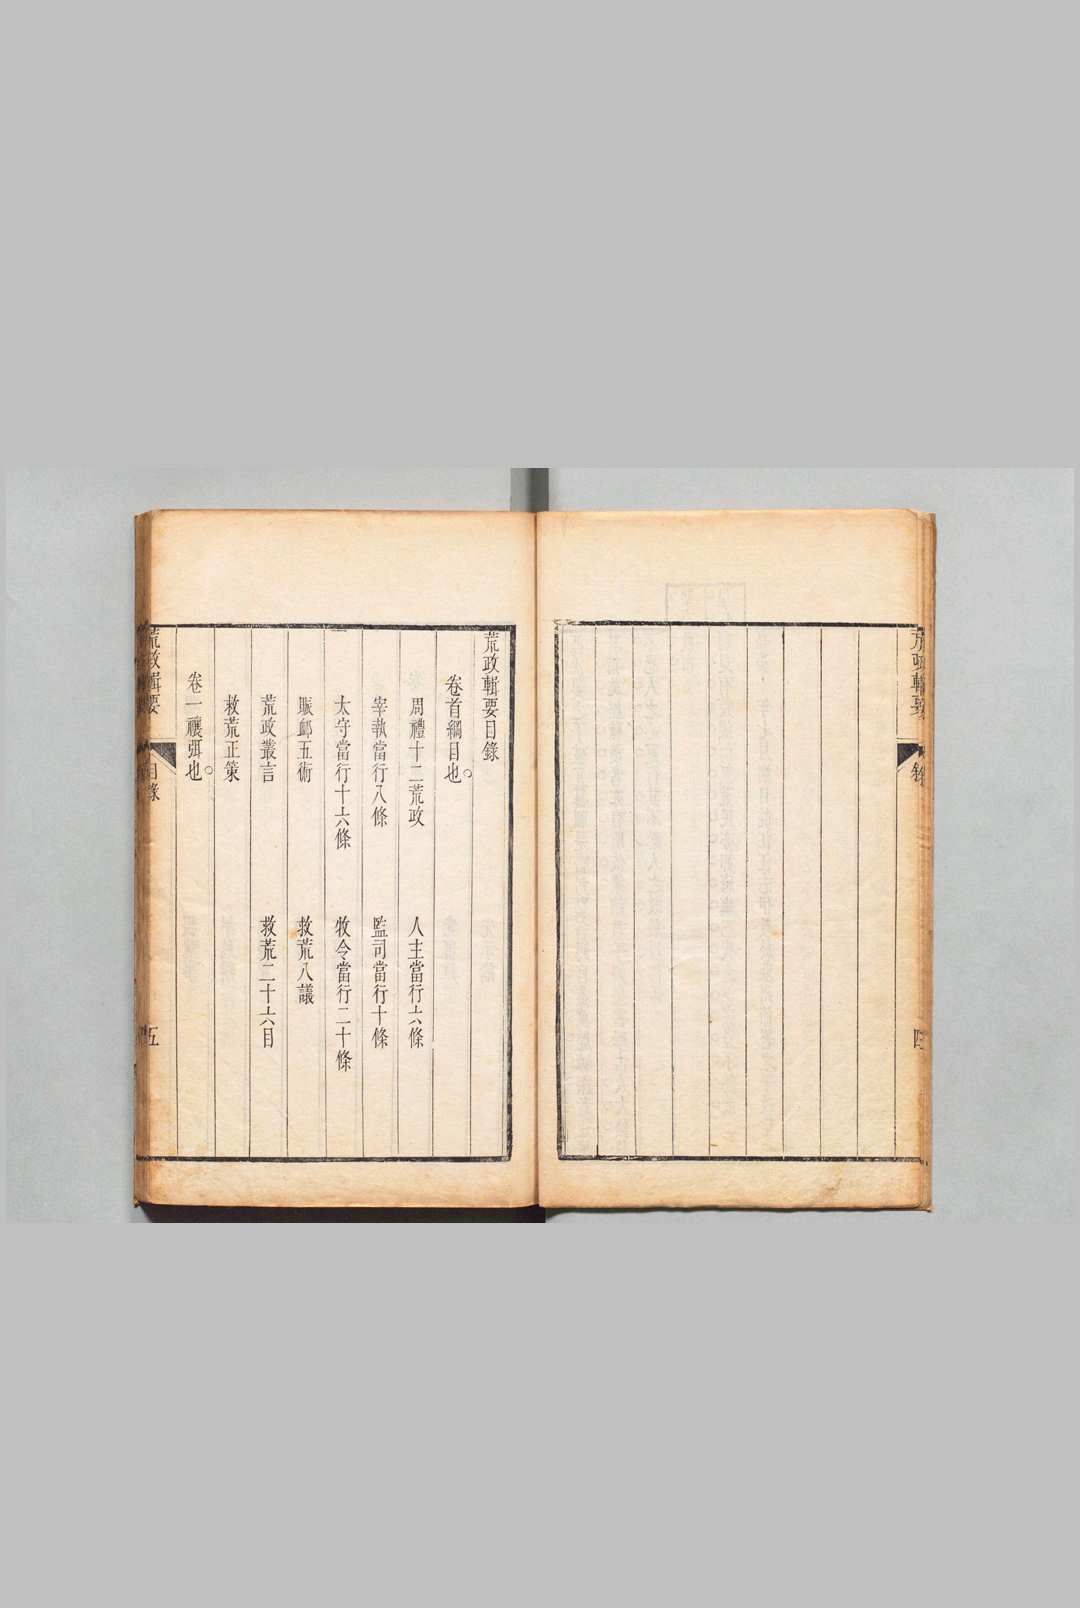 荒政輯要目錄
卷首綱目也。
周禮十二荒政　人主當行六條
宰執當行八條　監司當行十條
太守當行十六條　牧令當行二十條
賑䘏五術　救荒八議
荒政叢言　救荒二十六目
救荒正策
卷一禳弭也。
荒政輯要　目錄　五